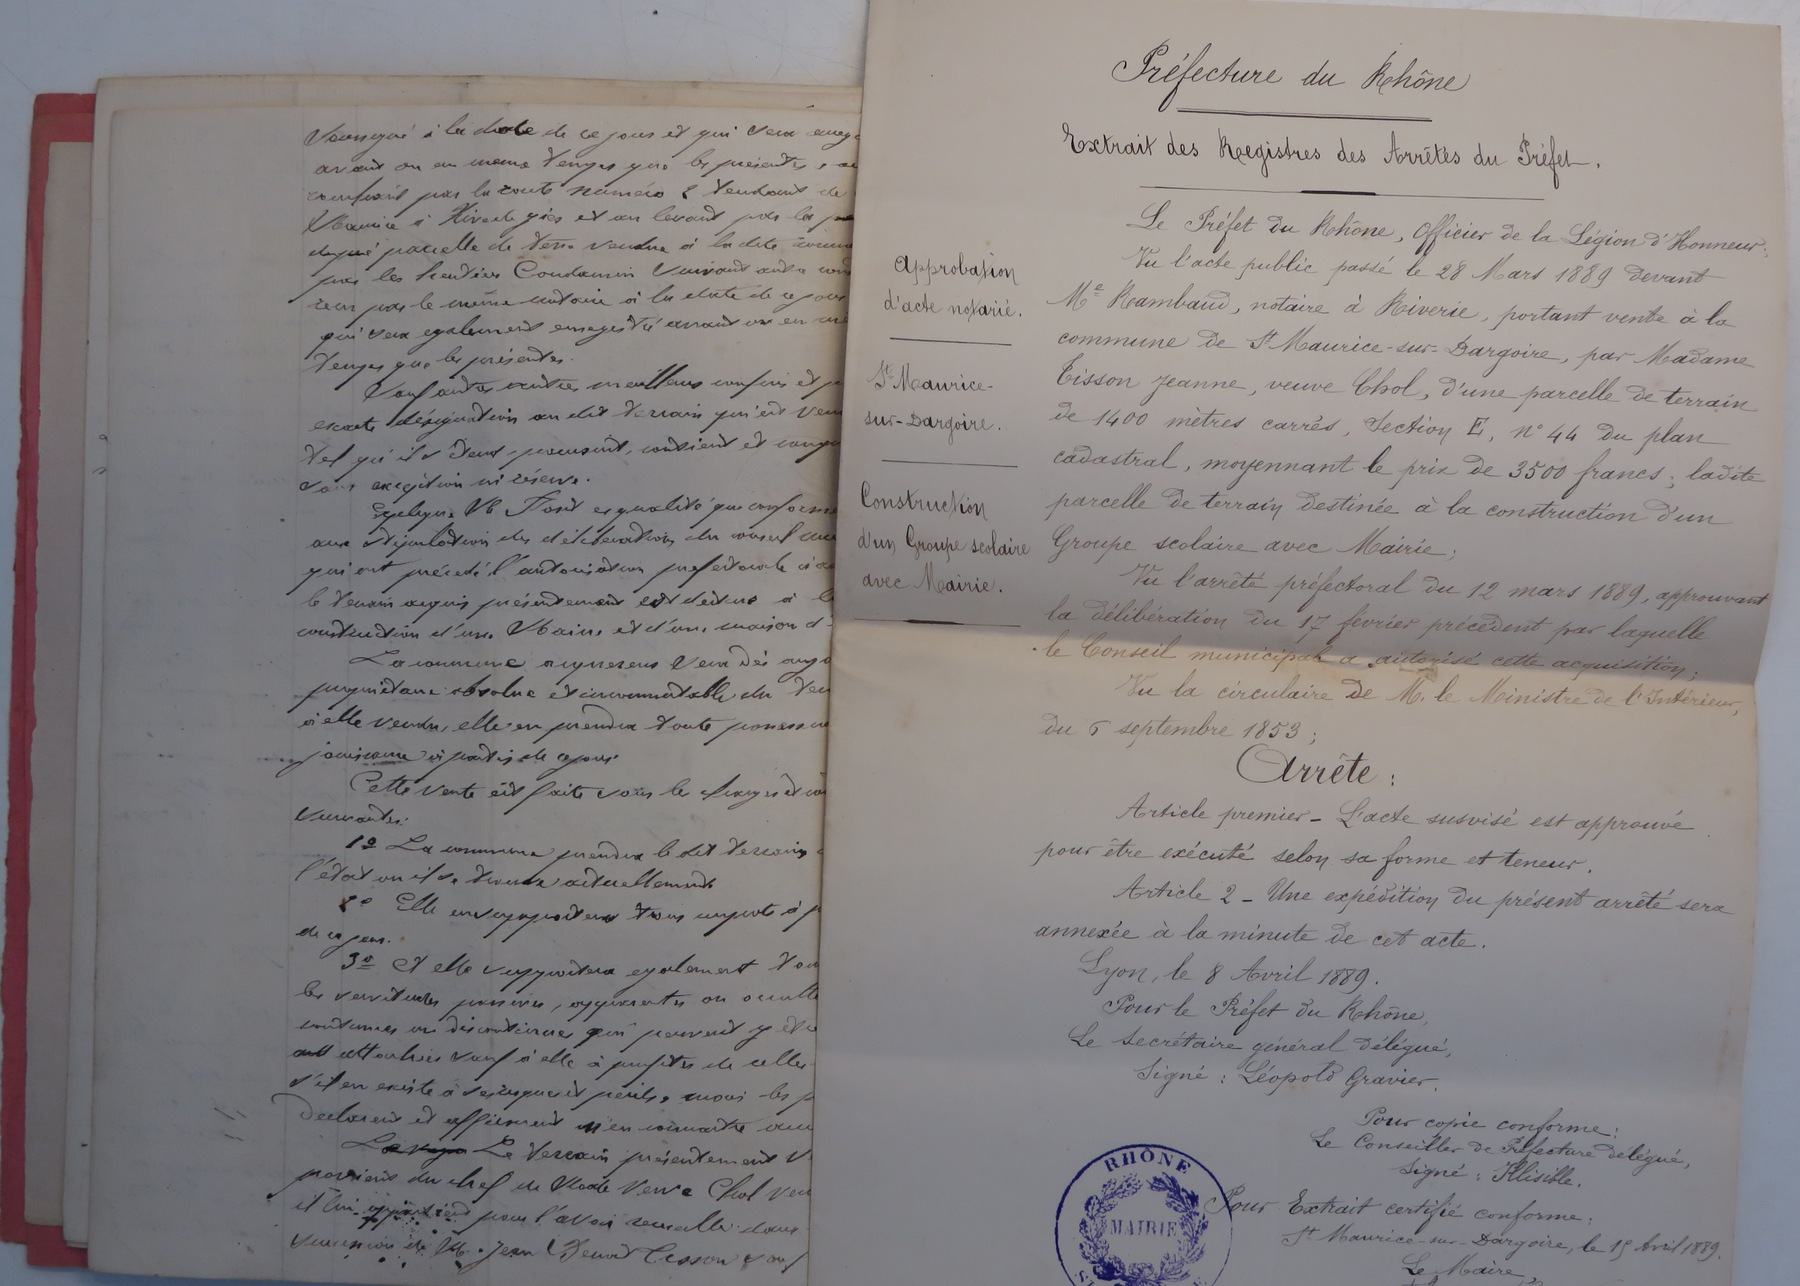 soussigné à la date de ce jour et qui sera enreg
avant ou en même temps que les présentes, au
couchant par la route numéro 2 tendant de
Maurice à Rive de gier et au levant par la
parcelle de terre vendue à la dite commune
par les héritiers Condamin suivant acte
par le même notaire à la date de ce jour
qui sera également enregistré avant ou en mê
temps que les présentes.
Sauf autres meilleurs confins et p
exacte désignation du dit terrain qui est ven
tel qu'il s'étend, poursuit, contient et comp
sans exception ni réserve.
Explique Mr ès qualité que conformé
aux stipulations des délibérations du conseil mu
qui ont précédé l'autorisation préfectorale
le terrain acquis présentement est destiné à l
construction d'une Mairie et d'une maison d'
La commune acquéreur sera dès aujo
propriétaire absolue et incommutable du ter
à elle vendu, elle en prendra toute possess
jouissance à partir de ce jour
Cette vente est faite sous les charges et con
suivantes:
1º La commune prendra le dit terrain
l'état où il se trouve actuellement
2º Elle en supportera tous impôts à p
de ce jour.
3º Et elle supportera également tou
les servitudes passives, apparentes ou occulte
continues ou discontinues qui peuvent y êt
attachées sauf à elle à profiter de celles
s'il en existe à ses risques et périls, mais les p
déclarent et affirment n'en connaître auc
Le terrain présentement v
provient du chef de Made Veuve Chol ven
et lui appartient pour l'avoir recueilli dans
succession de M. Jean Benoit Tisson
Préfecture du Rhône
Extrait des Registres des Arrêtés du Préfet.
Approbation
d'acte notarié.
St Maurice-
sur-Dargoire.
Construction
d'un Groupe scolaire
avec Mairie.
Le Préfet du Rhône, Officier de la Légion d'Honneur;
Vu l'acte public passé le 28 Mars 1889 devant
Me Rambaud, notaire à Riverie, portant vente à la
commune de St Maurice-sur-Dargoire, par Madame
Tisson Jeanne, veuve Chol, d'une parcelle de terrain
de 1400 mètres carrés, Section E, n° 44 du plan
cadastral, moyennant le prix de 3500 francs; ladite
parcelle de terrain destinée à la construction d'un
Groupe scolaire avec Mairie;
Vu l'arrêté préfectoral du 12 mars 1889, approuvant
la délibération du 17 février précédent par laquelle
le Conseil municipal a autorisé cette acquisition;
Vu la circulaire de M. le Ministre de l'Intérieur,
du 6 septembre 1853;
Arrête:
Article premier - L'acte susvisé est approuvé
pour être exécuté selon sa forme et teneur.
Article 2 - Une expédition du présent arrêté sera
annexée à la minute de cet acte.
Lyon, le 8 Avril 1889.
Pour le Préfet du Rhône,
Le Secrétaire général délégué,
Signé: Léopold Gravier.
Pour copie conforme:
Le Conseiller de Préfecture délégué,
Signé: Illisible.
Pour Extrait certifié conforme:
St Maurice-sur-Dargoire, le 15 Avril 1889.
Le Maire
RHÔNE
MAIRIE